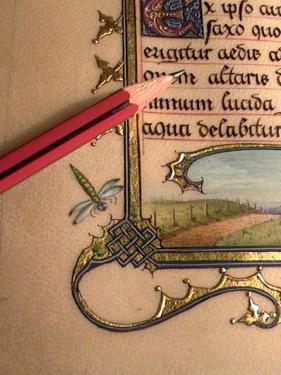 Ex ipso au
saxo quo
erigitur aedis a
altaris d
nimium lucida
aqua delabitur